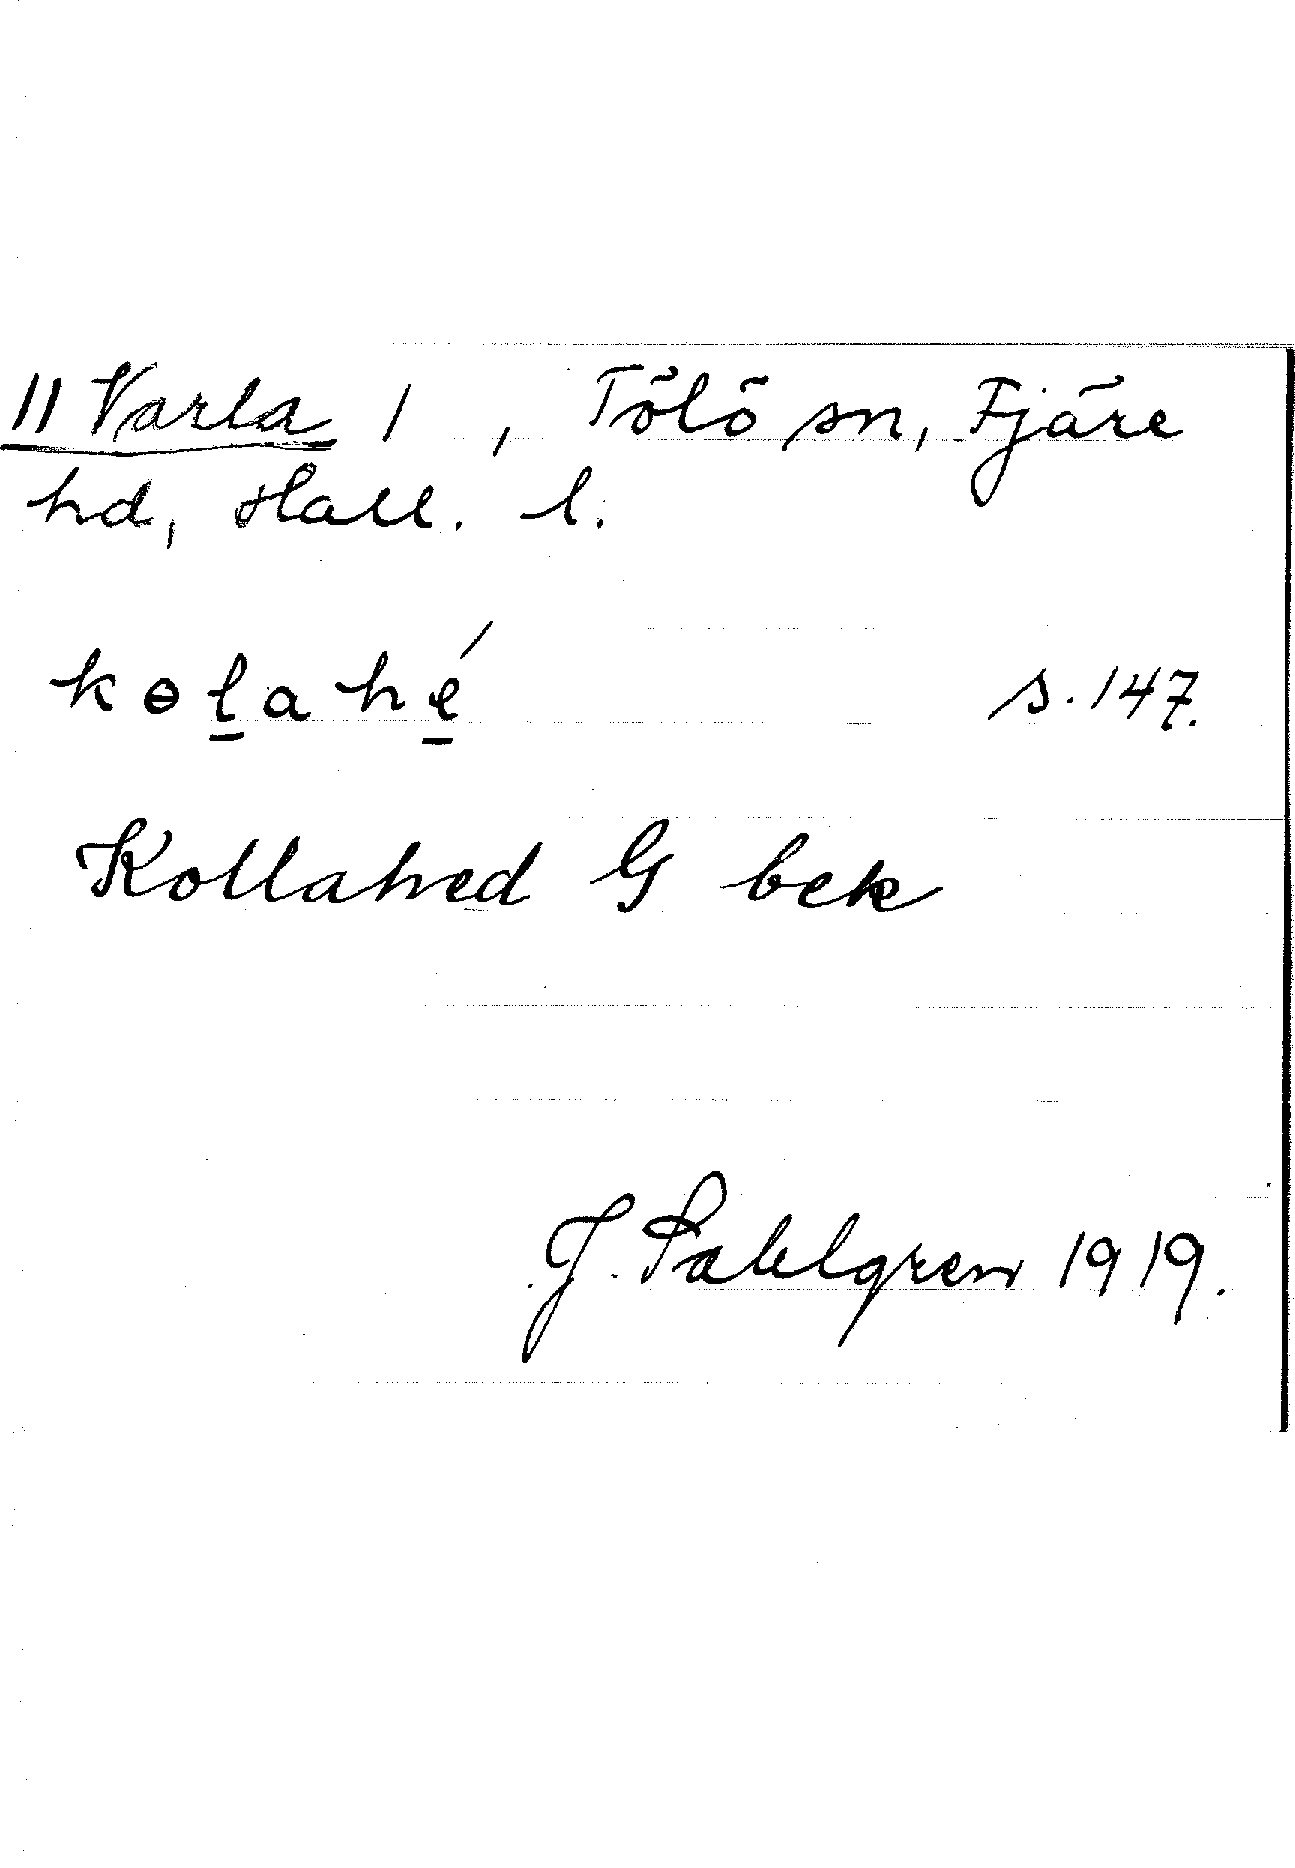 11 Varla 1, Tölö sn, Fjäre
hd, Hall. l.
kɵl̲ahé̲ s. 147.
Kollahed G bek
J. Sahlgren 1919.